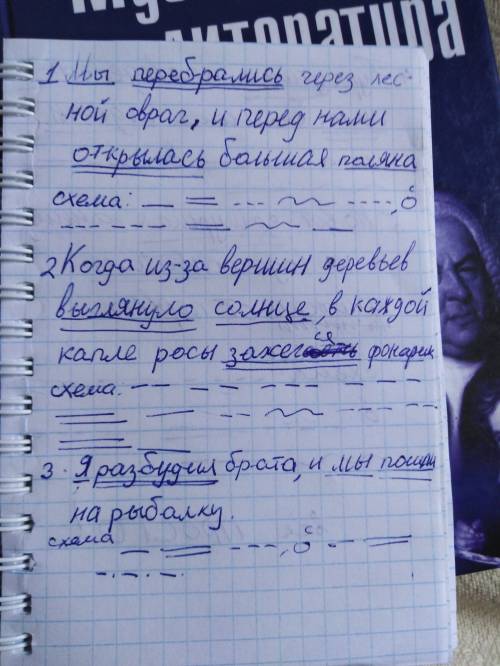 Му
литература
1 Мы перебрались через лес-
ной овраг, и перед нами
открылась большая поляна
схема:
2 Когда из-за вершин деревьев
выглянуло солнце, в каждой
капле росы зажегся фонарик
схема.
3. Я разбудил брата, и мы пошли
на рыбалку.
схема